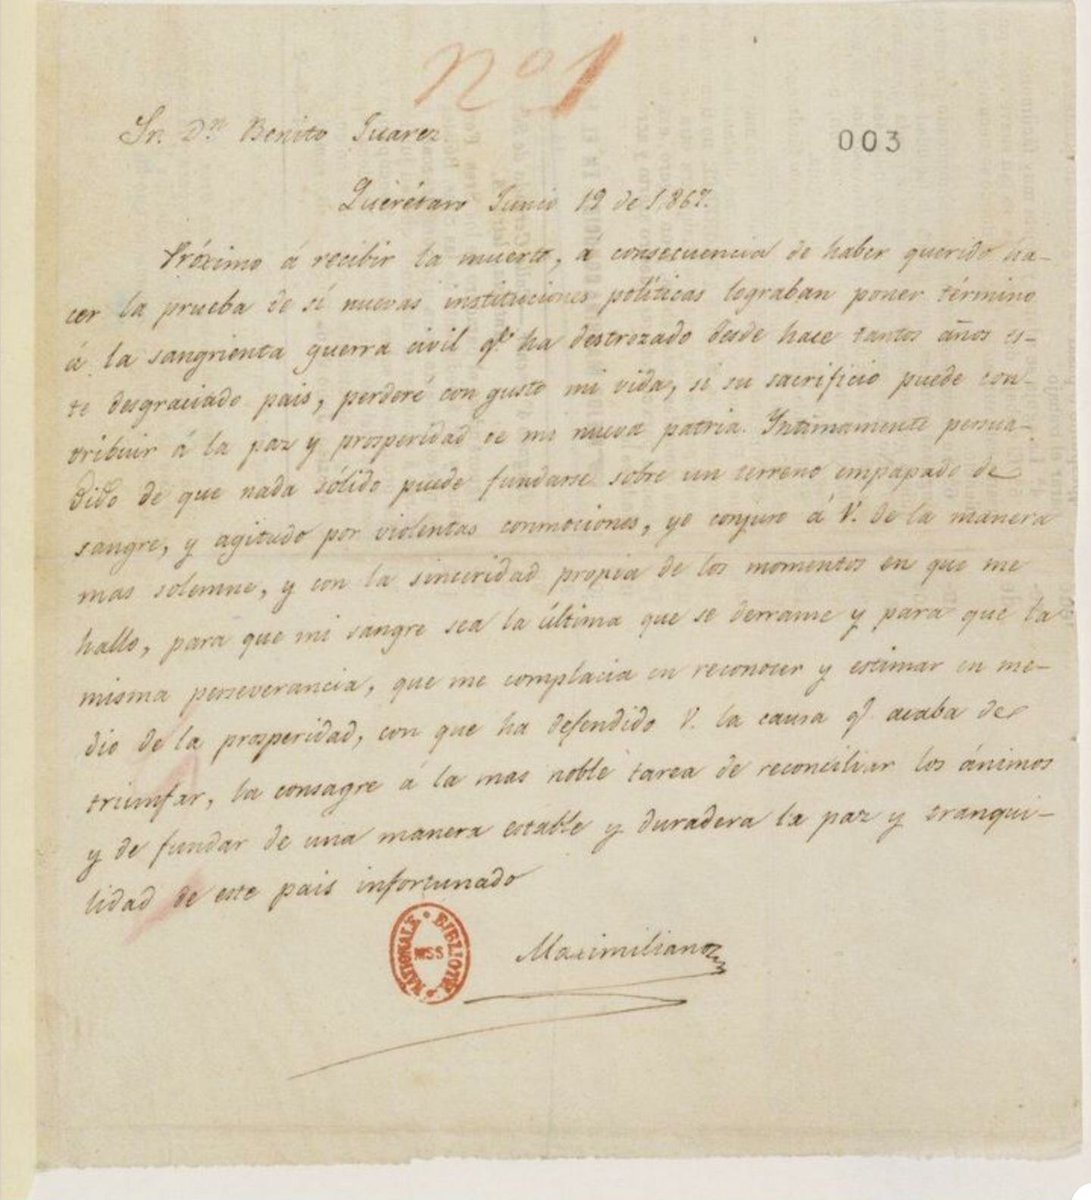 Nº 1
Sr. Dn Benito Juarez.
003
Querétaro Junio 19 de 1.867.
Próximo á recibir la muerte, á consecuencia de haber querido ha-
cer la prueba de sí nuevas instituciones políticas lograban poner término
á la sangrienta guerra civil qe ha destrozado desde hace tantos años es-
te desgraciado pais, perderé con gusto mi vida, si su sacrificio puede con-
tribuir á la paz y prosperidad de mi nueva patria. Intimamente persua-
dido de que nada sólido puede fundarse sobre un terreno empapado de
sangre, y agitado por violentas conmociones, yo conjuro á V. de la manera
mas solemne, y con la sinceridad propia de los momentos en que me
hallo, para que mi sangre sea la última que se derrame y para que la
misma perseverancia, que me complacia en reconocer y estimar en me-
dio de la prosperidad, con que ha defendido V. la causa qe acaba de
triunfar, la consagre á la mas noble tarea de reconciliar los ánimos
y de fundar de una manera estable y duradera la paz y tranqui-
lidad de este pais infortunado
Maximiliano
BIBLIOTH. NATIONALE
MSS